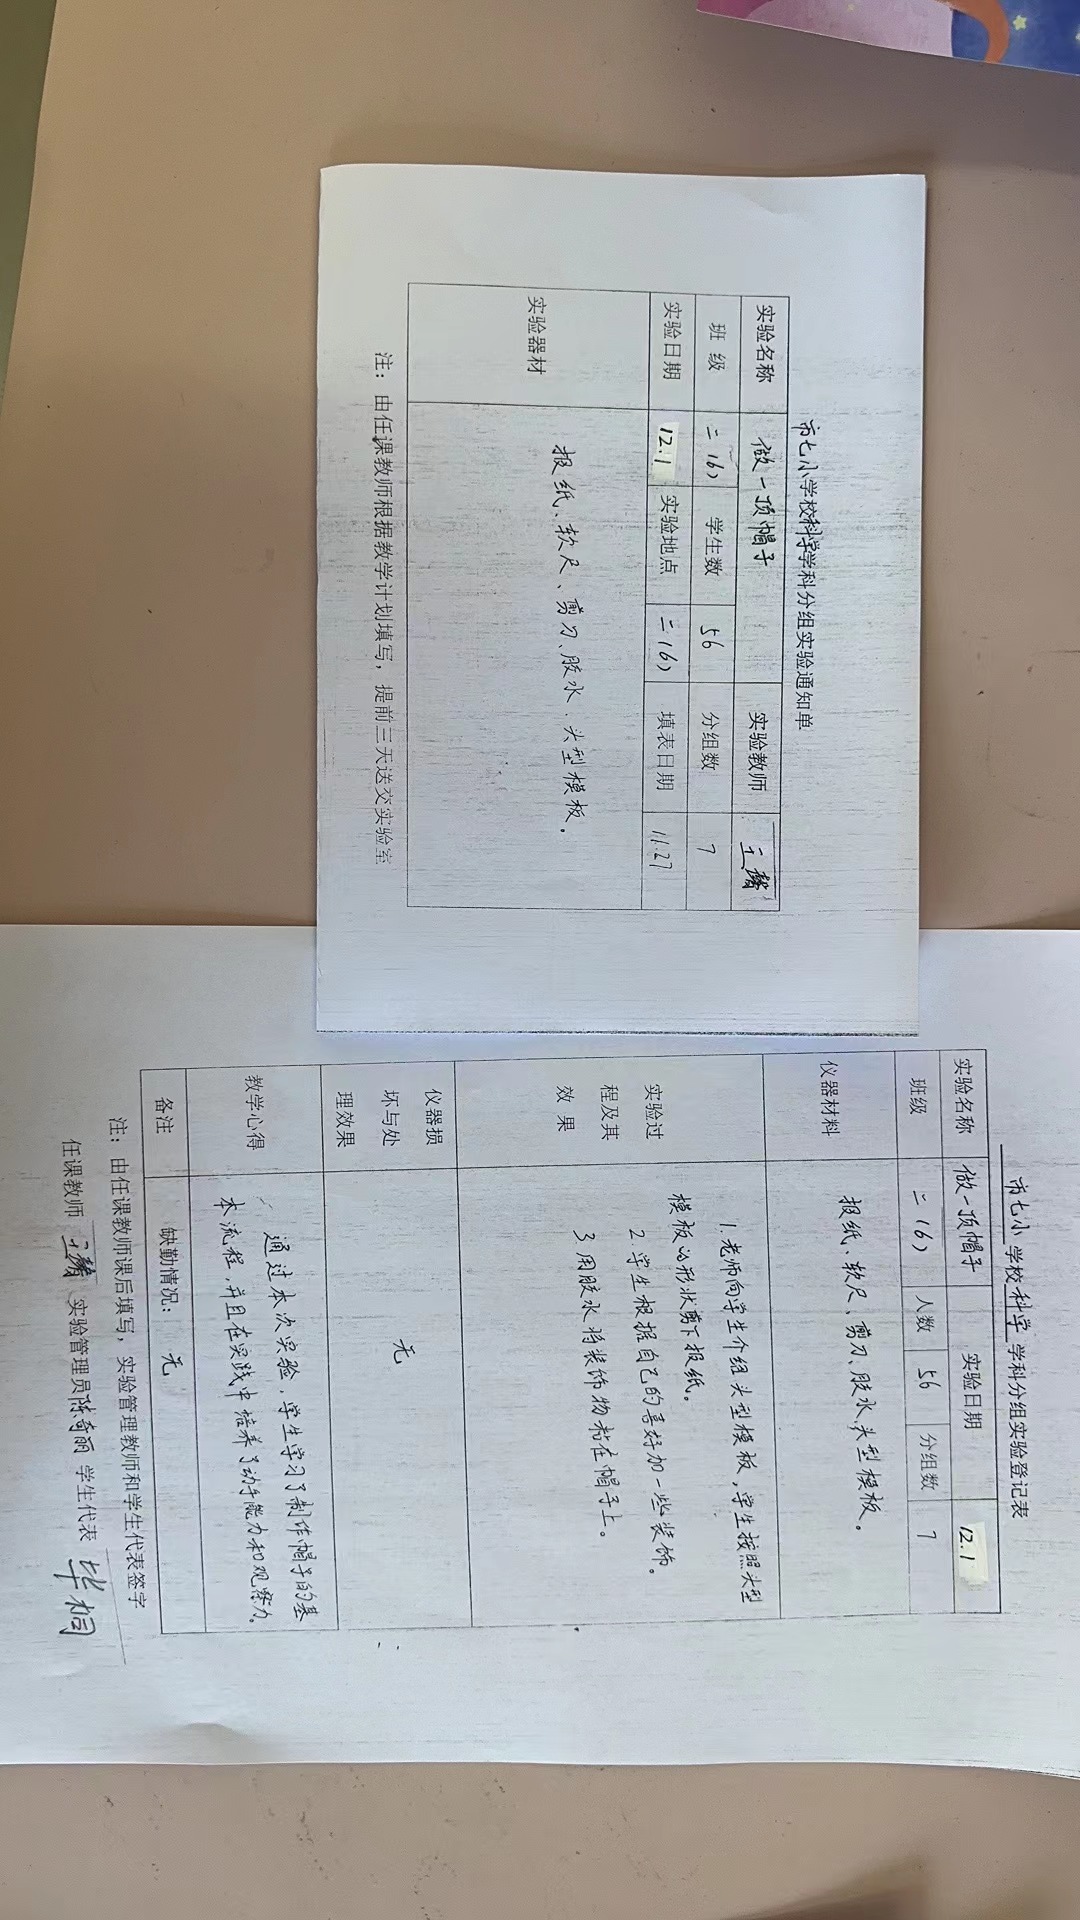 市七小学校科学学科分组实验通知单
实验名称 做一顶帽子 实验教师 王
班 级 二(6) 学生数 56 分组数 7
实验日期 12.1 实验地点 二(6) 填表日期 11.27
实验器材 报纸、软尺、剪刀、胶水、头型模板。
注：由任课教师根据教学计划填写，提前三天送交实验室
市七小学校科学学科分组实验登记表
实验名称 做一顶帽子 实验日期 12.1
班级 二(6) 人数 56 分组数 7
仪器材料 报纸、软尺、剪刀、胶水、头型模板。
实验过
程及其
效 果
1.老师向学生介组头型模板，学生按照头型
模板的形状剪下报纸。
2.学生根据自己的喜好加一些装饰。
3用胶水将装饰物粘在帽子上。
仪器损
坏与处
理效果
无
教学心得
通过本次实验，学生学习了制作帽子的基
本流程，并且在实践中培养了动手能力和观察力。
备注 缺勤情况：无
注：由任课教师课后填写，实验管理教师和学生代表签字
任课教师 王 实验管理员陈奇丽 学生代表 毕桐